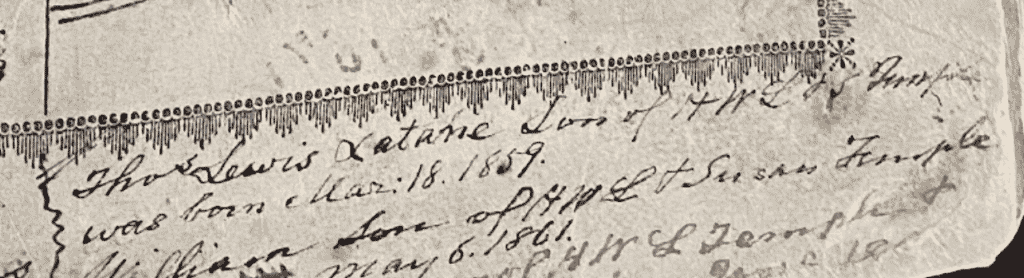 Thos Lewis Latane Son of H W L & S Temple
was born Mar: 18. 1859.
William Son of H W L & Susan Temple
May 6. 1861.
of H W L Temple &